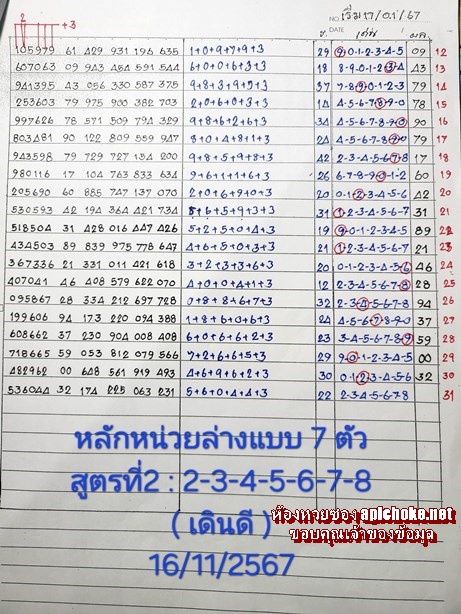 2
+3
NO. เริ่ม 17/01/67
ข. DATE เด่น ผล
105979 61 429 931 196 635 1+0+9+7+9+3 29 9-0-1-2-3-4-5 09 12
607063 09 943 484 591 544 6+0+0+6+3+3 18 8-9-0-1-2-3-4 43 13
941395 43 056 330 587 375 9+8+3+9+5+3 37 7-8-9-0-1-2-3 79 14
253603 79 975 900 382 703 2+0+6+0+3+3 14 4-5-6-7-8-9-0 78 15
997626 78 571 509 794 329 9+8+6+2+6+3 34 4-5-6-7-8-9-0 90 16
803481 90 122 809 559 947 8+0+4+8+1+3 24 4-5-6-7-8-9-0 79 17
943598 79 729 727 134 200 9+8+5+9+8+3 42 2-3-4-5-6-7-8 17 18
980116 17 104 763 833 634 9+6+1+1+6+3 26 6-7-8-9-0-1-2 60 19
205690 60 885 747 137 070 2+0+6+9+0+3 20 0-1-2-3-4-5-6 42 20
530593 42 194 364 421 734 5+6+5+9+3+3 31 1-2-3-4-5-6-7 31 21
518504 31 428 016 447 426 5+2+5+0+4+3 19 9-0-1-2-3-4-5 89 22
434503 89 839 975 778 647 4+6+5+0+3+3 21 1-2-3-4-5-6-7 21 23
367336 21 331 011 421 618 3+2+3+3+6+3 20 0-1-2-3-4-5-6 46 24
407041 46 408 579 622 070 4+0+0+4+1+3 12 2-3-4-5-6-7-8 28 25
095867 28 334 212 697 728 0+8+8+6+7+3 32 2-3-4-5-6-7-8 94 26
199606 94 173 220 094 388 1+8+6+0+6+3 24 4-5-6-7-8-9-0 37 27
608662 37 230 904 008 408 6+0+6+6+2+3 23 3-4-5-6-7-8-9 59 28
718665 59 053 812 079 566 7+2+6+6+5+3 29 9-0-1-2-3-4-5 00 29
482962 00 648 561 919 493 4+6+9+6+2+3 30 0-1-2-3-4-5-6 32 30
536044 32 174 225 063 231 5+6+0+4+4+3 22 2-3-4-5-6-7-8 31
หลักหน่วยล่างแบบ 7 ตัว
สูตรที่2 : 2-3-4-5-6-7-8
( เดินดี )
16/11/2567
ห้องหวยซอง apichoke.net
ขอบคุณเจ้าของข้อมูล